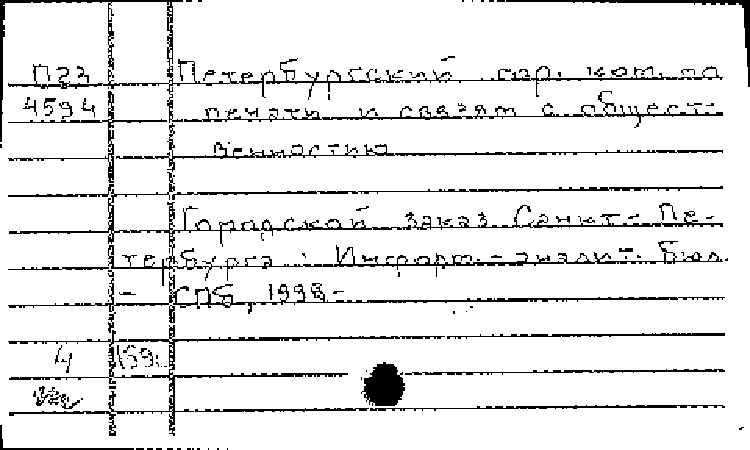 П23 Петербургский гор. ком. по
4594 печати и связям с общест-
венностью
Городской заказ Санкт-Пе-
тербурга : Информ.-аналит. бюл.
- СПб, 1998-
4